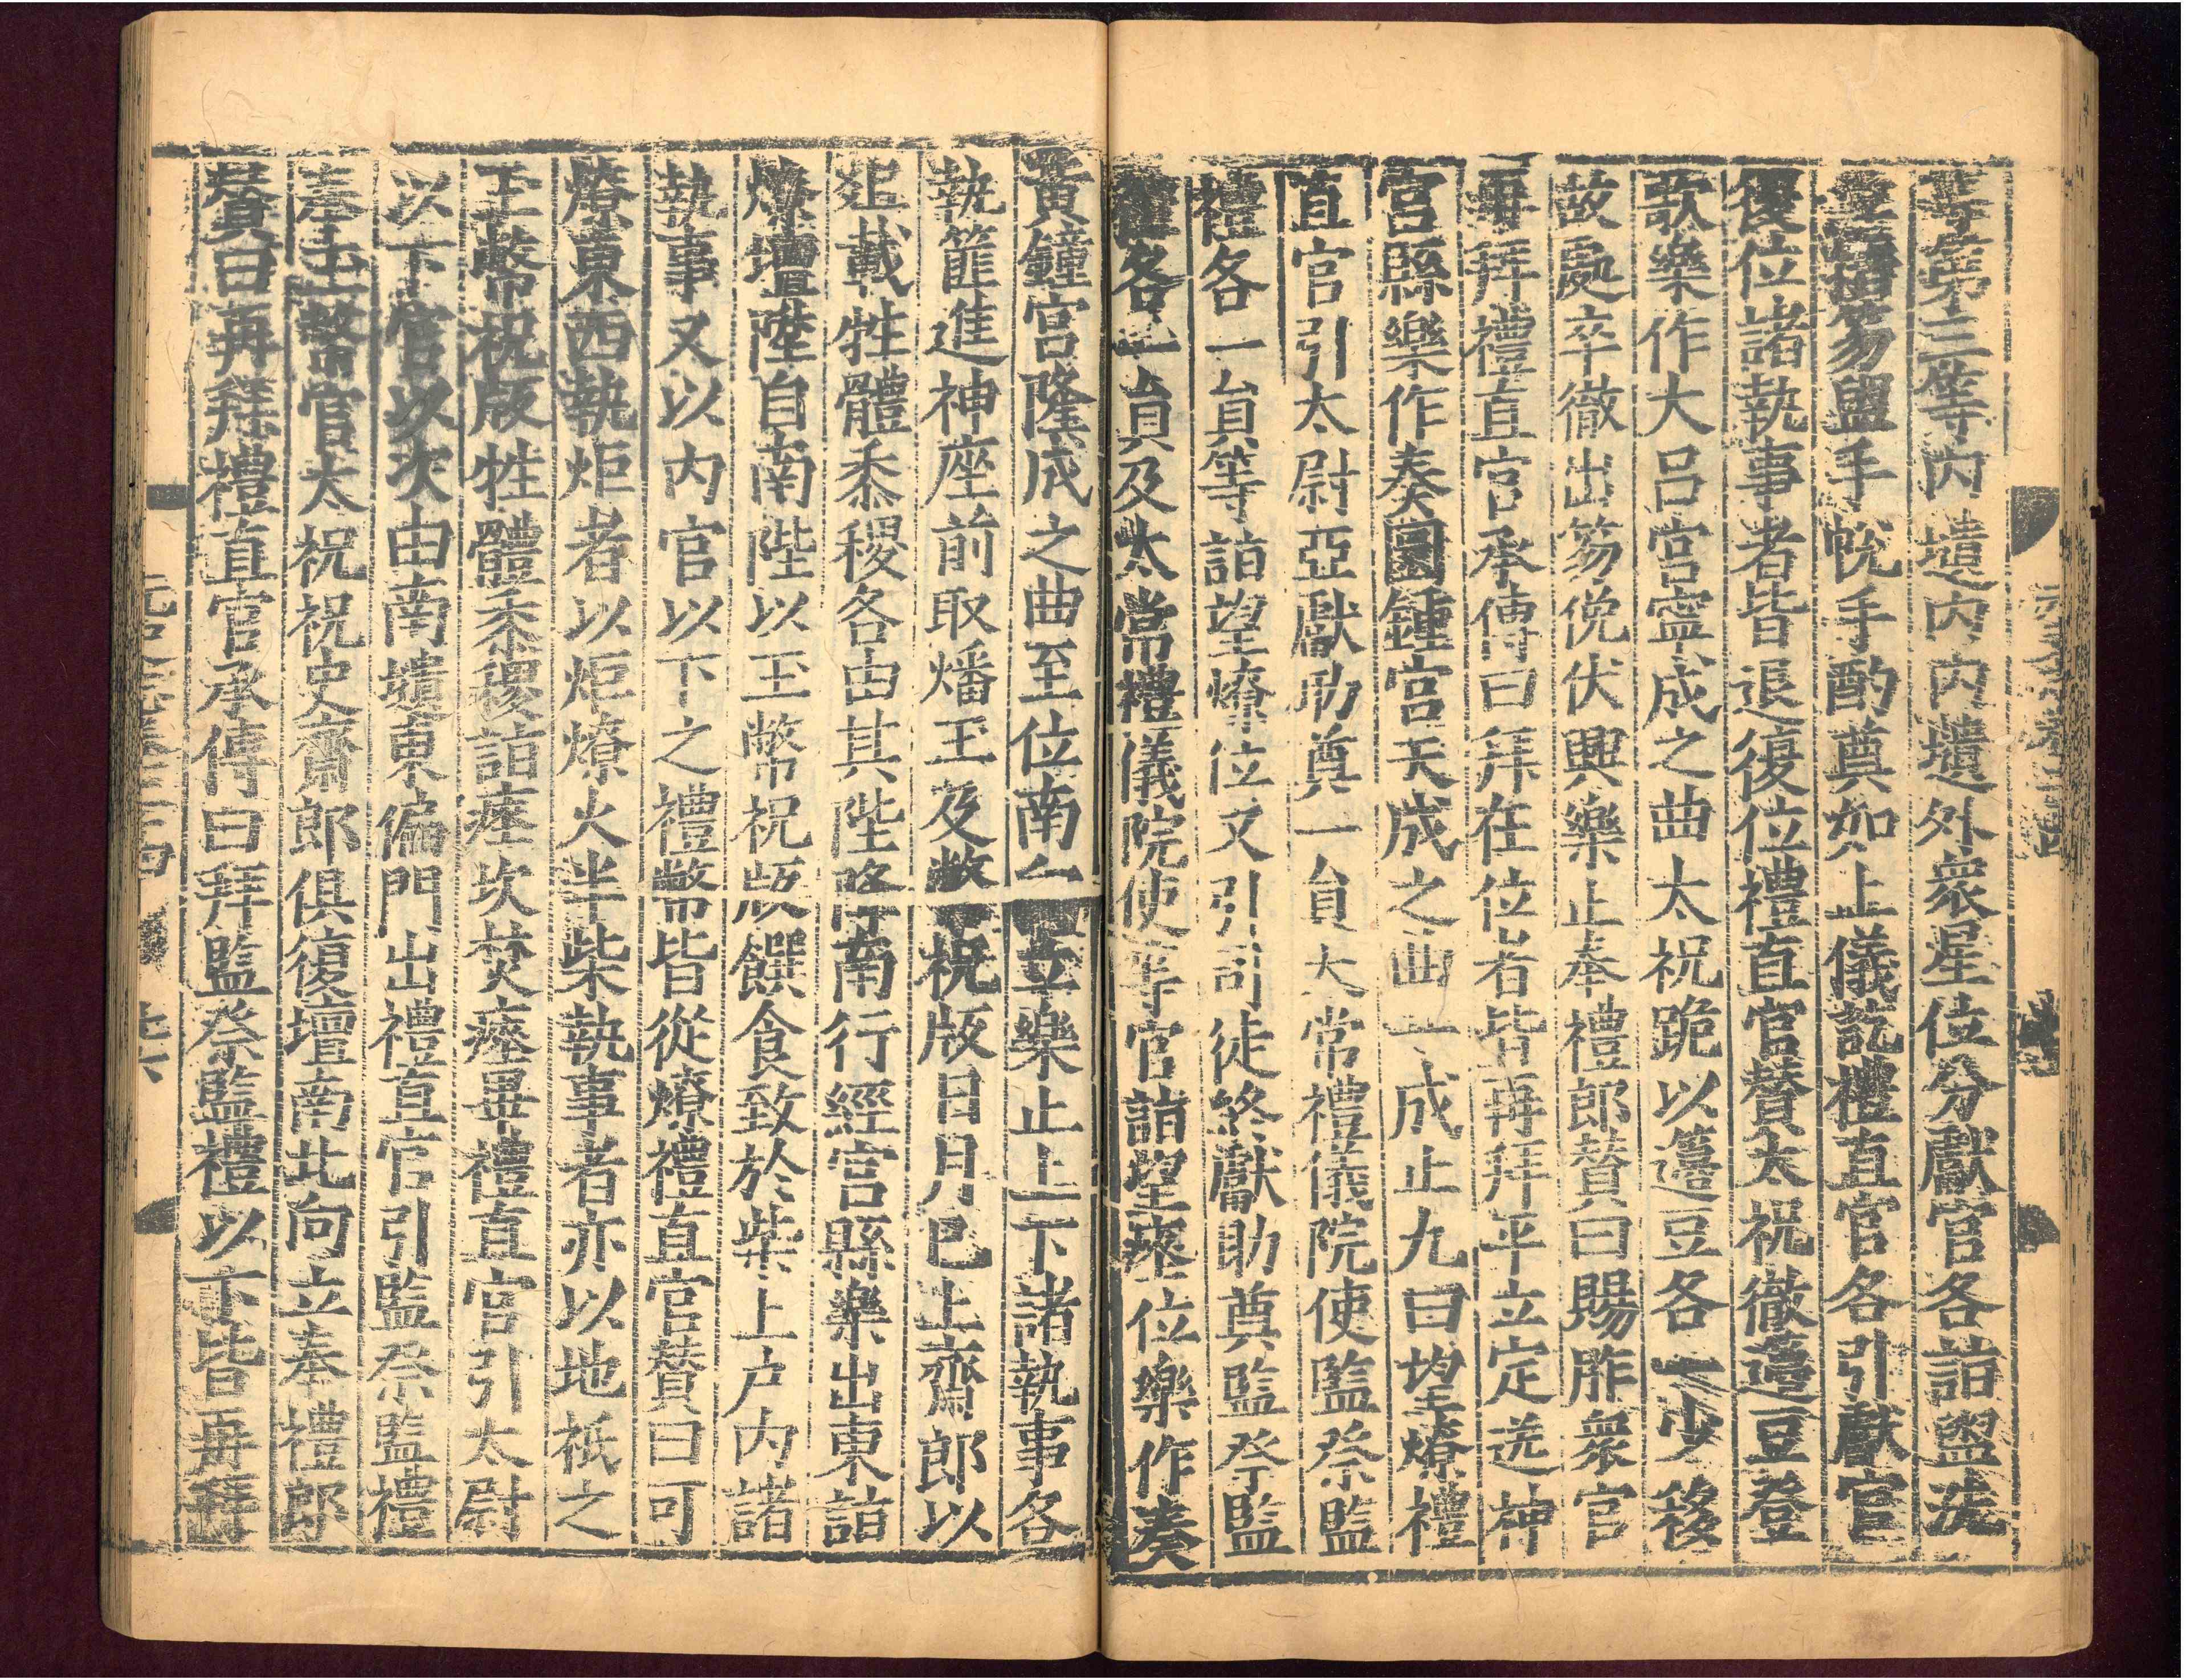 等第三等內壝內內壝外衆星位分獻官各詣盥洗
位搢笏盥手帨手酌奠如上儀訖禮直官各引獻官
復位諸執事者皆退復位禮直官贊太祝徹籩豆登
歌樂作大呂宮寧成之曲太祝跪以籩豆各一少移
故處卒徹出笏俛伏興樂止奉禮郎贊曰賜胙衆官
再拜禮直官承傳曰拜在位者皆再拜平立定送神
宮縣樂作奏圜鍾宮天成之曲一成止九曰望燎禮
直官引太尉亞獻助奠一員太常禮儀院使監祭監
禮各一員等詣望燎位又引司徒終獻助奠監祭監
禮各一員及太常禮儀院使等官詣望瘞位樂作奏
黃鐘宮隆成之曲至位南向立樂止上下諸執事各
執篚進神座前取燔玉及幣祝版日月已上齋郎以
爼載牲體黍稷各由其陛降南行經宮縣樂出東詣
燎壇陞自南陛以玉幣祝版饌食致於柴上戶內諸
執事又以內官以下之禮幣皆從燎禮直官贊曰可
燎東西執炬者以炬燎火半柴執事者亦以地祇之
玉幣祝版牲體黍稷詣瘞坎焚瘞畢禮直官引太尉
以下官以次由南壝東偏門出禮直官引監祭監禮
奉玉幣官太祝祝史齋郎俱復壇南北向立奉禮郎
贊曰再拜禮直官承傳曰拜監祭監禮以下皆再拜